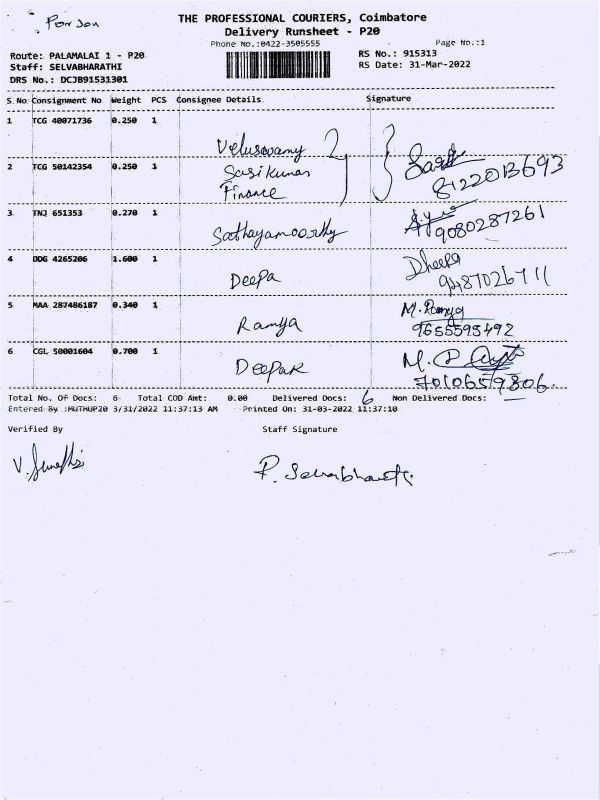 THE PROFESSIONAL COURIERS, Coimbatore
Delivery Runsheet - P20
Phone No.:0422-3505555 Page No.:1
Route: PALAMALAI 1 - P20 RS No.: 915313
Staff: SELVABHARATHI RS Date: 31-Mar-2022
DRS No.: DCJB91531301
S.No Consignment No Weight PCS Consignee Details Signature
1 TCG 40071736 0.250 1
Veluswamy
2 TCG 50142354 0.250 1 Sasikumar
Finance 8122013693
3 TNJ 651353 0.270 1
Sathayamoorthy 9080287261
4 DDG 4265206 1.600 1 Dheepa
Deepa 9487026711
5 MAA 287486187 0.340 1 M. Ramya
Ramya 9655595492
6 CGL 50001604 0.700 1
Deepak 7010659806
Total No. Of Docs: 6 Total COD Amt: 0.00 Delivered Docs: 6 Non Delivered Docs:
Entered By :MUTHUP20 3/31/2022 11:37:13 AM Printed On: 31-03-2022 11:37:10
Verified By Staff Signature
P. Selvabharathi